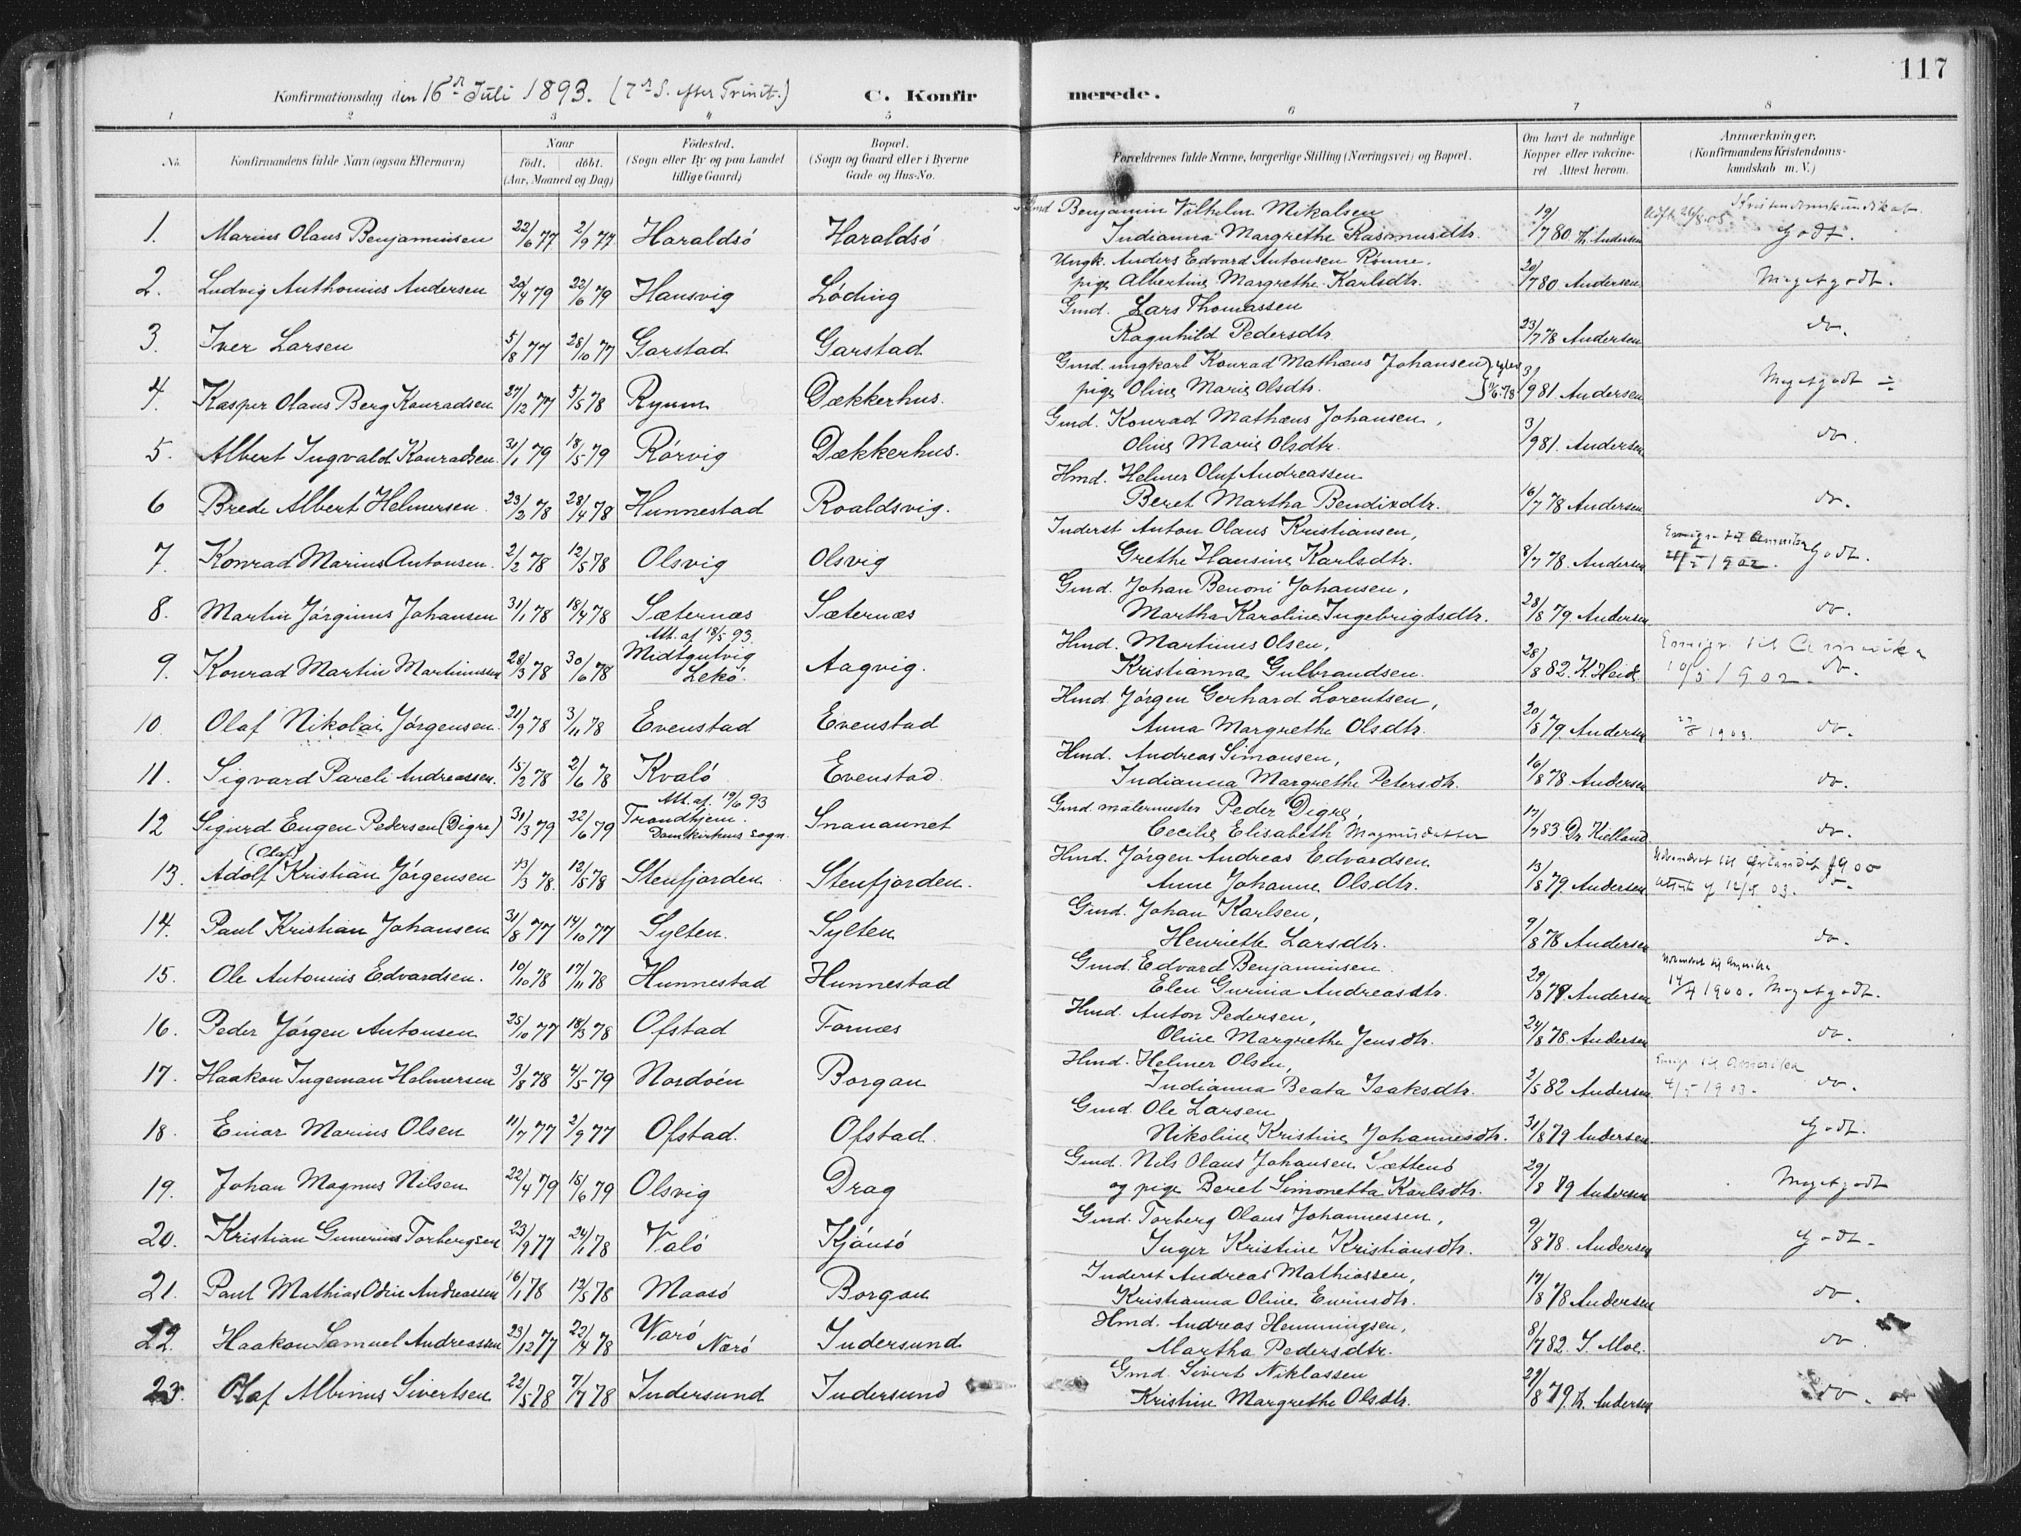 117
Konfirmationsdag den 16de Juli 1893. (7de S. efter Trinit.) C. Konfirmerede.
1 2 3 4 5 6 7 8
No. Konfirmandens fulde Navn (ogsaa Efternavn) Naar født. døbt. (Aar, Maaned og Dag) Fødested. (Sogn eller By og paa Landet tillige Gaard) Bopæl. (Sogn og Gaard eller i Byerne Gade og Hus-No. Forældrenes fulde Navne, borgerlige Stilling (Næringsvei) og Bopæl. Om havt de naturlige Kopper eller vakcineret Attest herom. Anmærkninger. (Konfirmandens Kristendomskundskab m. V.)
Gmd Benjamin Vilhelm Mikalsen Kristendomskundskab
1. Marius Olaus Benjaminsen 22/6 77 2/9 77 Haraldsø Haraldsø Indianna Margrethe Rasmusdtr. 19/7 80 Th. Andersen Godt.
Ungk. Anders Edvard Antonsen Rønne.
2. Ludvig Anthonius Andersen 20/4 79 22/6 79 Hansvig Løding pige Albertine Margrethe Karlsdtr. 20/7 80 Andersen Megetgodt.
Gmd. Lars Thomassen
3. Iver Larsen 5/8 77 28/10 77 Garstad Garstad Ragnhild Pedersdtr. 23/7 78 Andersen do.
Gmd. ungkarl Konrad Mathæus Johansen
4. Kasper Olaus Berg Konradsen 27/12 77 5/5 78 Ryum Dækkerhus. pige Oline Marie Olsdtr. 3/9 81 Andersen Megetgodt ÷
Gmd. Konrad Mathæus Johansen,
5. Albert Ingvald Konradsen 31/1 79 18/5 79 Rørvig Dækkerhus. Oline Marie Olsdtr. 3/9 81. Andersen do.
Hmd. Helmer Oluf Andreassen
6 Brede Albert Helmersen 23/2 78 28/4 78 Hunnestad Roaldsvig. Beret Martha Bendixdtr. 16/7 78 Andersen do.
Inderst Anton Olaus Kristiansen, Emigr. til Amerika
7. Konrad Marius Antonsen. 2/2 78 12/5 78 Olsvig Olsvig Grethe Hansine Karlsdtr. 8/7 78. Andersen 1902. Godt.
Gmd. Johan Benoni Johansen,
8. Martin Jørginus Johansen 31/1 78 18/4 78 Sæternæs Sæternæs Martha Karoline Ingebrigtsdtr. 28/8 79. Andersen do.
Att. af 18/5 93.
Hmd. Martinus Olsen, Emigr. til Amerika
9. Konrad Martin Martinussen 28/3 78 30/6 78 Midtgutvig Lekø. Aagvig. Kristianna Gulbrandsen. 28/8 82. K. Heide 10/5 1902. do.
Hmd. Jørgen Gerhard Lorentsen,
10. Olaf Nikolai Jørgensen. 21/9 78 3/11 78 Evenstad Evenstad Anna Margrethe Olsdtr. 20/8 79. Andersen 1903. do.
Hmd. Andreas Simonsen,
11. Sigvard Pareli Andreassen. 15/2 78 2/6 78 Kvalø Evenstad. Indianna Margrethe Petersdtr. 16/8 78 Andersen do.
Att. af. 19/6 93
Gmd malermester Peder Digre,
12 Sigurd Eugen Pedersen (Digre) 31/3 79 22/6 79 Trondhjem. Domkirkens sogn. Snauaunet Cecilie Elisabeth Magnusdatter 17/7 83 Dr. Kielland do.
(Olaf)
Hmd. Jørgen Andreas Edvardsen 1900
13. Adolf Kristian Jørgensen 13/3 78. 12/5 78 Stenfjorden Stenfjorden. Anne Johanne Olsdtr. 13/8 79. Andersen 12/5 03. do.
Gmd. Johan Karlsen,
14. Paul Kristian Johansen 31/8 77 14/10 77 Sylten. Sylten Henriette Larsdtr. 9/8 78 Andersen do.
Gmd. Edvard Benjaminsen Amerika
15. Ole Antonius Edvardsen. 10/10 78 17/11 78 Hunnestad Hunnestad Elen Gurina Andreasdtr. 29/8 79 Andersen 1900. Megetgodt.
Hmd. Anton Pedersen,
16. Peder Jørgen Antonsen 25/10 77 18/3 78 Ofstad Fornæs Oline Margrethe Jensdtr. 24/8 78 Andersen do.
Hmd. Helmer Olsen, Emigr. til Amerika
17. Haakon Ingeman Helmersen 3/8 78 4/5 79 Nordøen Borgan Indianna Beata Isaksdtr. 2/5 82 Andersen 4/5 1903. do.
Gmd Ole Larsen
18. Einar Marius Olsen 11/7 77 2/9 77 Ofstad. Ofstad. Nikoline Kristine Johannesdtr. 31/8 79 Andersen. Godt.
Gmd. Nils Olaus Johansen Sættenø
19. Johan Magnus Nilsen 22/4 79 15/6 79 Olsvig Drag og pige Beret Simonetta Karlsdtr. 29/8 79 Andersen Megetgodt
Gmd. Torberg Olaus Johannessen,
20. Kristian Gunerius Torbergsen 23/9 77 24/1 78 Valø Kjønsø Inger Kristine Kristiansdtr. 9/8 78. Andersen Godt.
Inderst Andreas Mathiassen,
21. Paul Mathias Odin Andreassen 16/1 78 12/5 78 Maasø Borgan Kristianna Oline Enrinsdtr. 17/8 78 Andersen do.
Hmd. Andreas Hemmingsen,
22. Haakon Samuel Andreassen 23/12 77 22/4 78 Varø Nærø Indersund Martha Pedersdtr. 8/7 82. J. Moe. do
Gmd. Sivert Niklassen
23. Olaf Albinus Sivertsen 22/5 78 7/7 78 Indersund Indersund Kristine Margrethe Olsdtr. 29/8 79. Th. Andersen do.